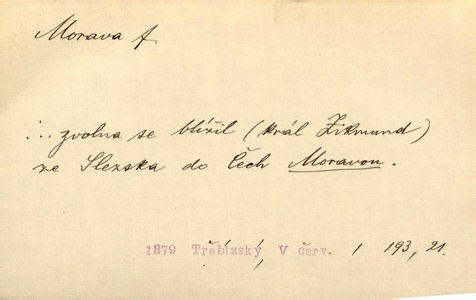 Morava f
... zvolna se blížil (král Zikmund)
ze Slezska do Čech Moravou.
1879 Třebízský, V červ. / 193, 21.